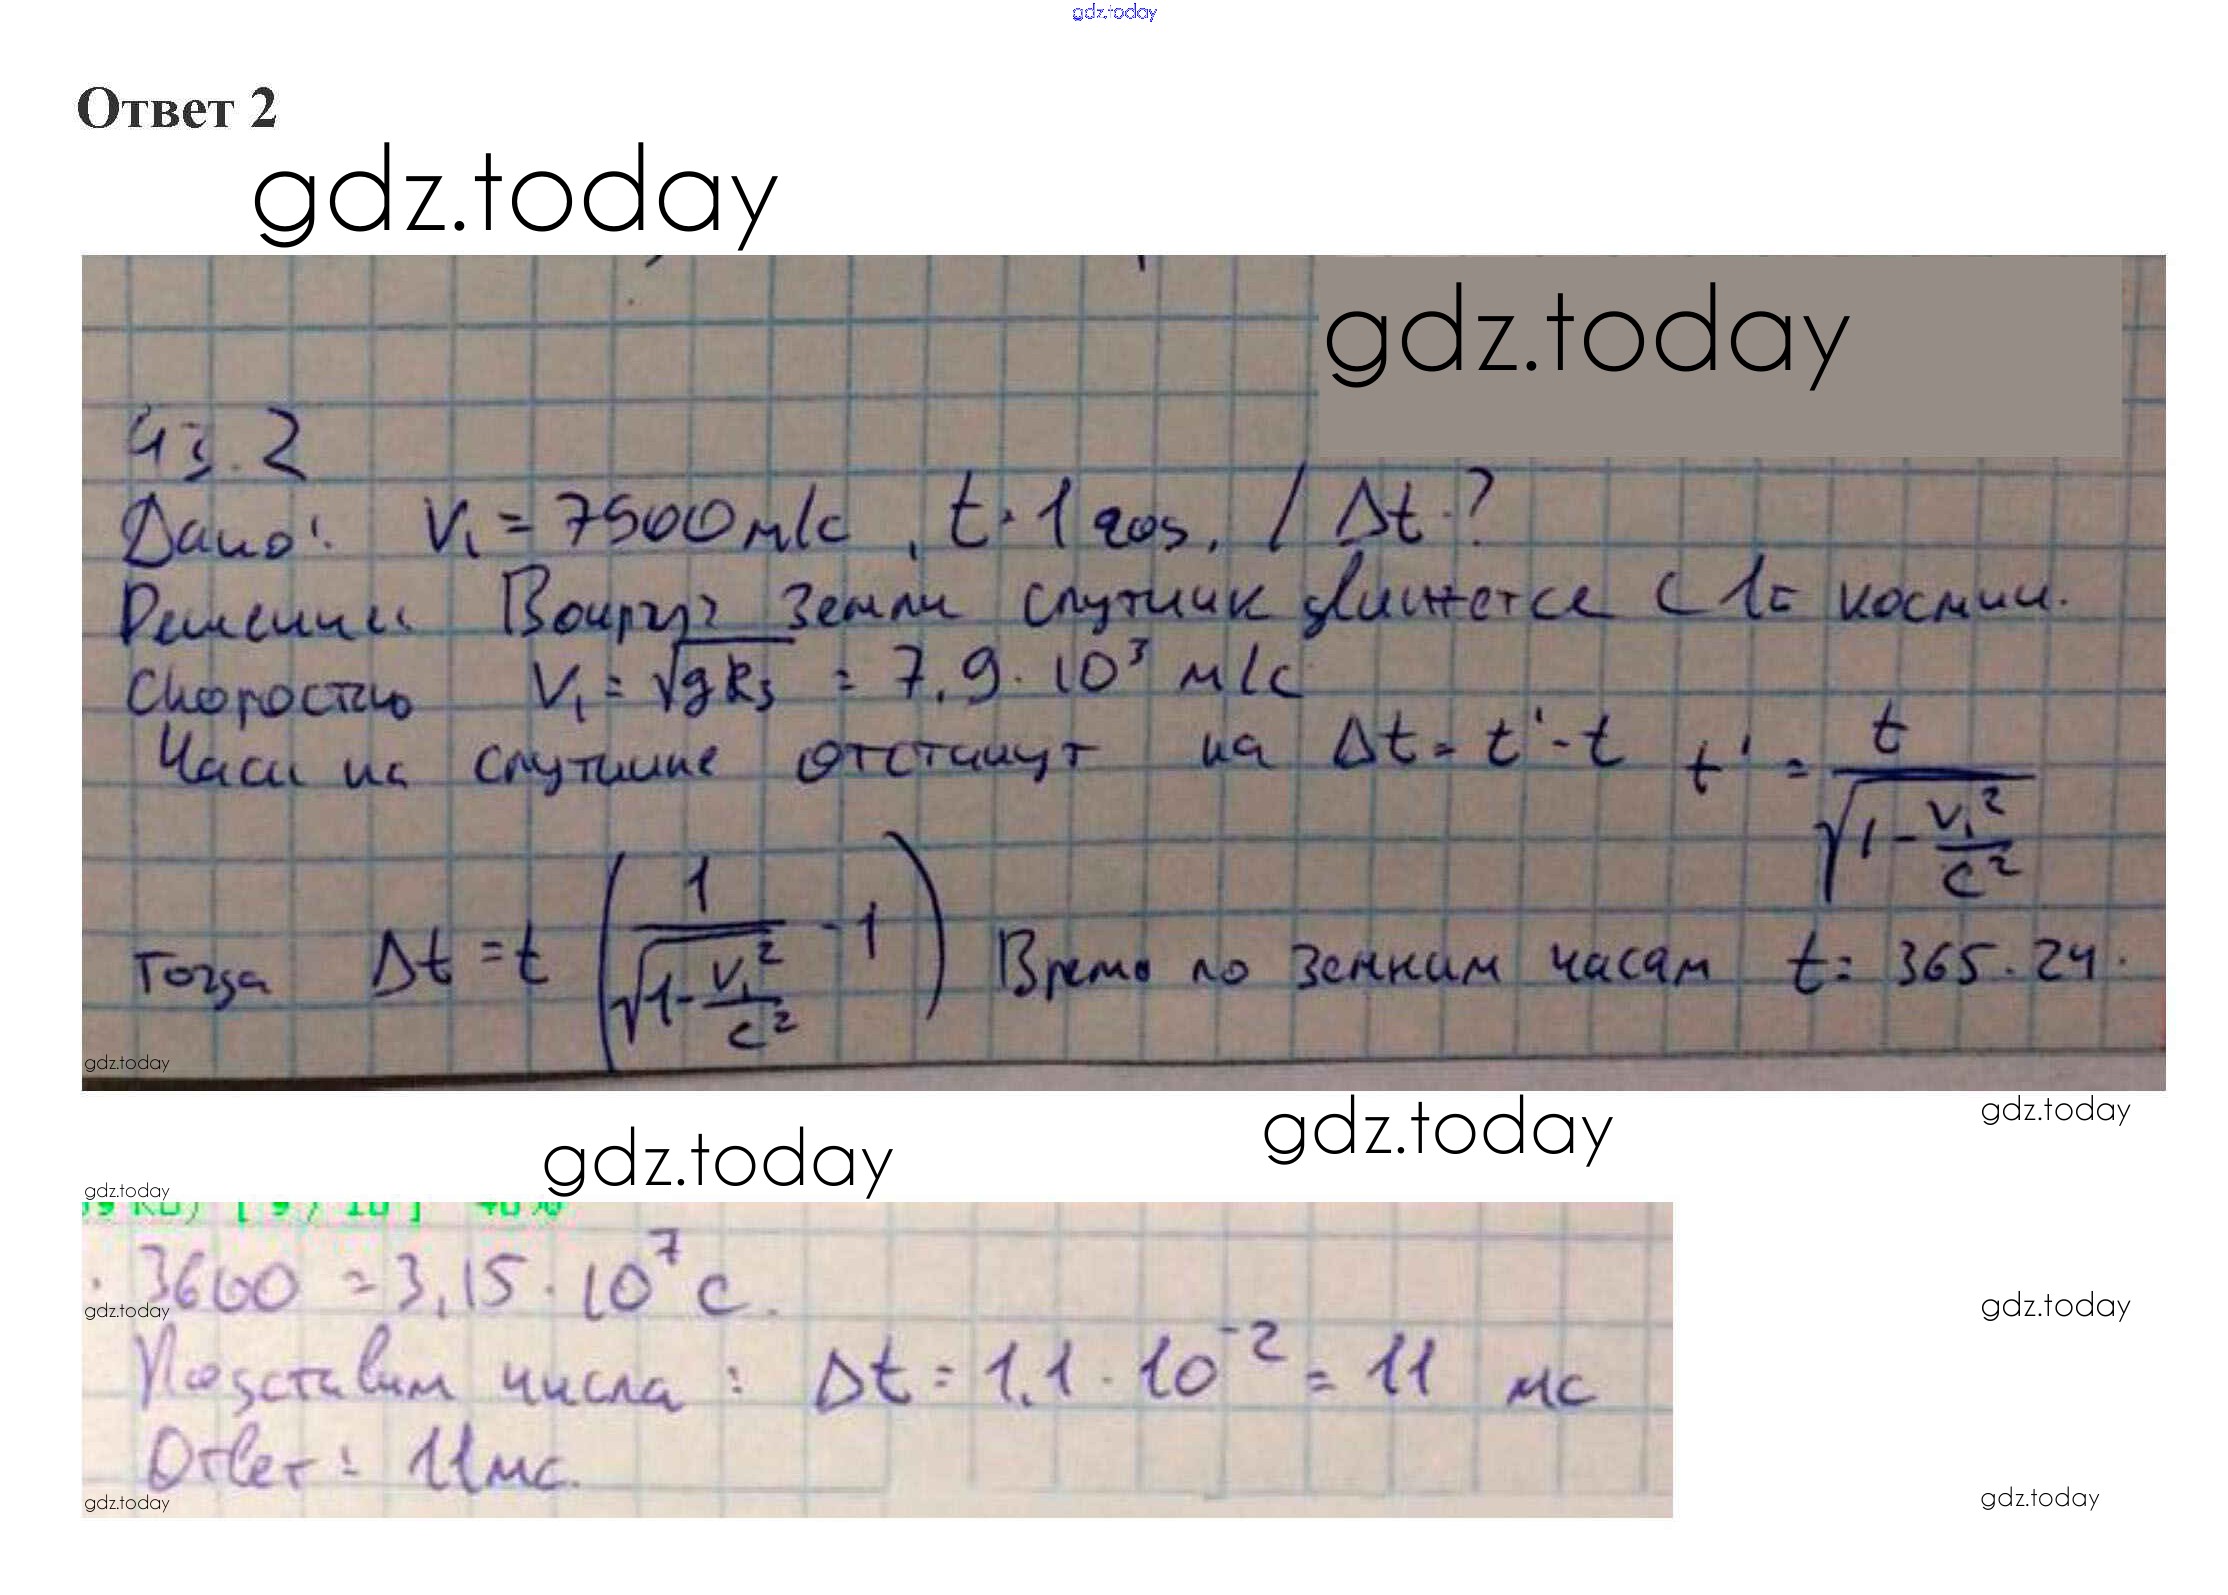 gdz.today
Ответ 2
gdz.today
gdz.today
43.2
Дано: V₁ = 7500 м/с, t = 1 год, / Δt - ?
Решение Вокруг Земли спутник движется с 1й космич.
скоростью V₁ = √gRз = 7,9 · 10³ м/с
Часы на спутнике отстанут на Δt = t' - t t' = t / √(1 - V₁²/c²)
Тогда Δt = t (1 / √(1 - V₁²/c²) - 1) Время по земным часам t = 365 · 24 ·
gdz.today
gdz.today
gdz.today
gdz.today
gdz.today
· 3600 = 3,15 · 10⁷ с.
gdz.today
gdz.today
Подставим числа: Δt = 1,1 · 10⁻² = 11 мс
Ответ: 11 мс.
gdz.today
gdz.today